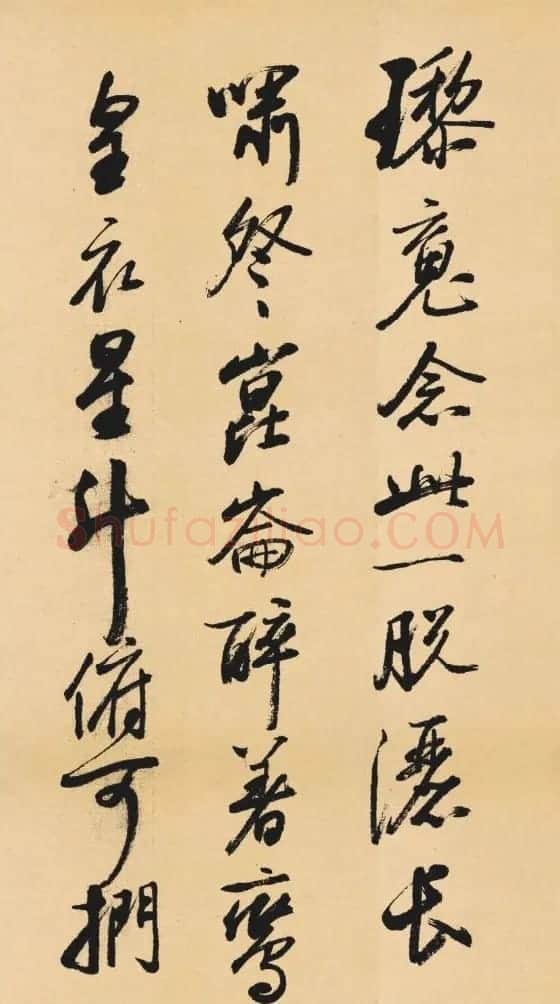 瓈魂念此一脱灑長
嘯祭崑崙醉著鸞
皇衣星斗俯可捫
Shufaziliao.COM